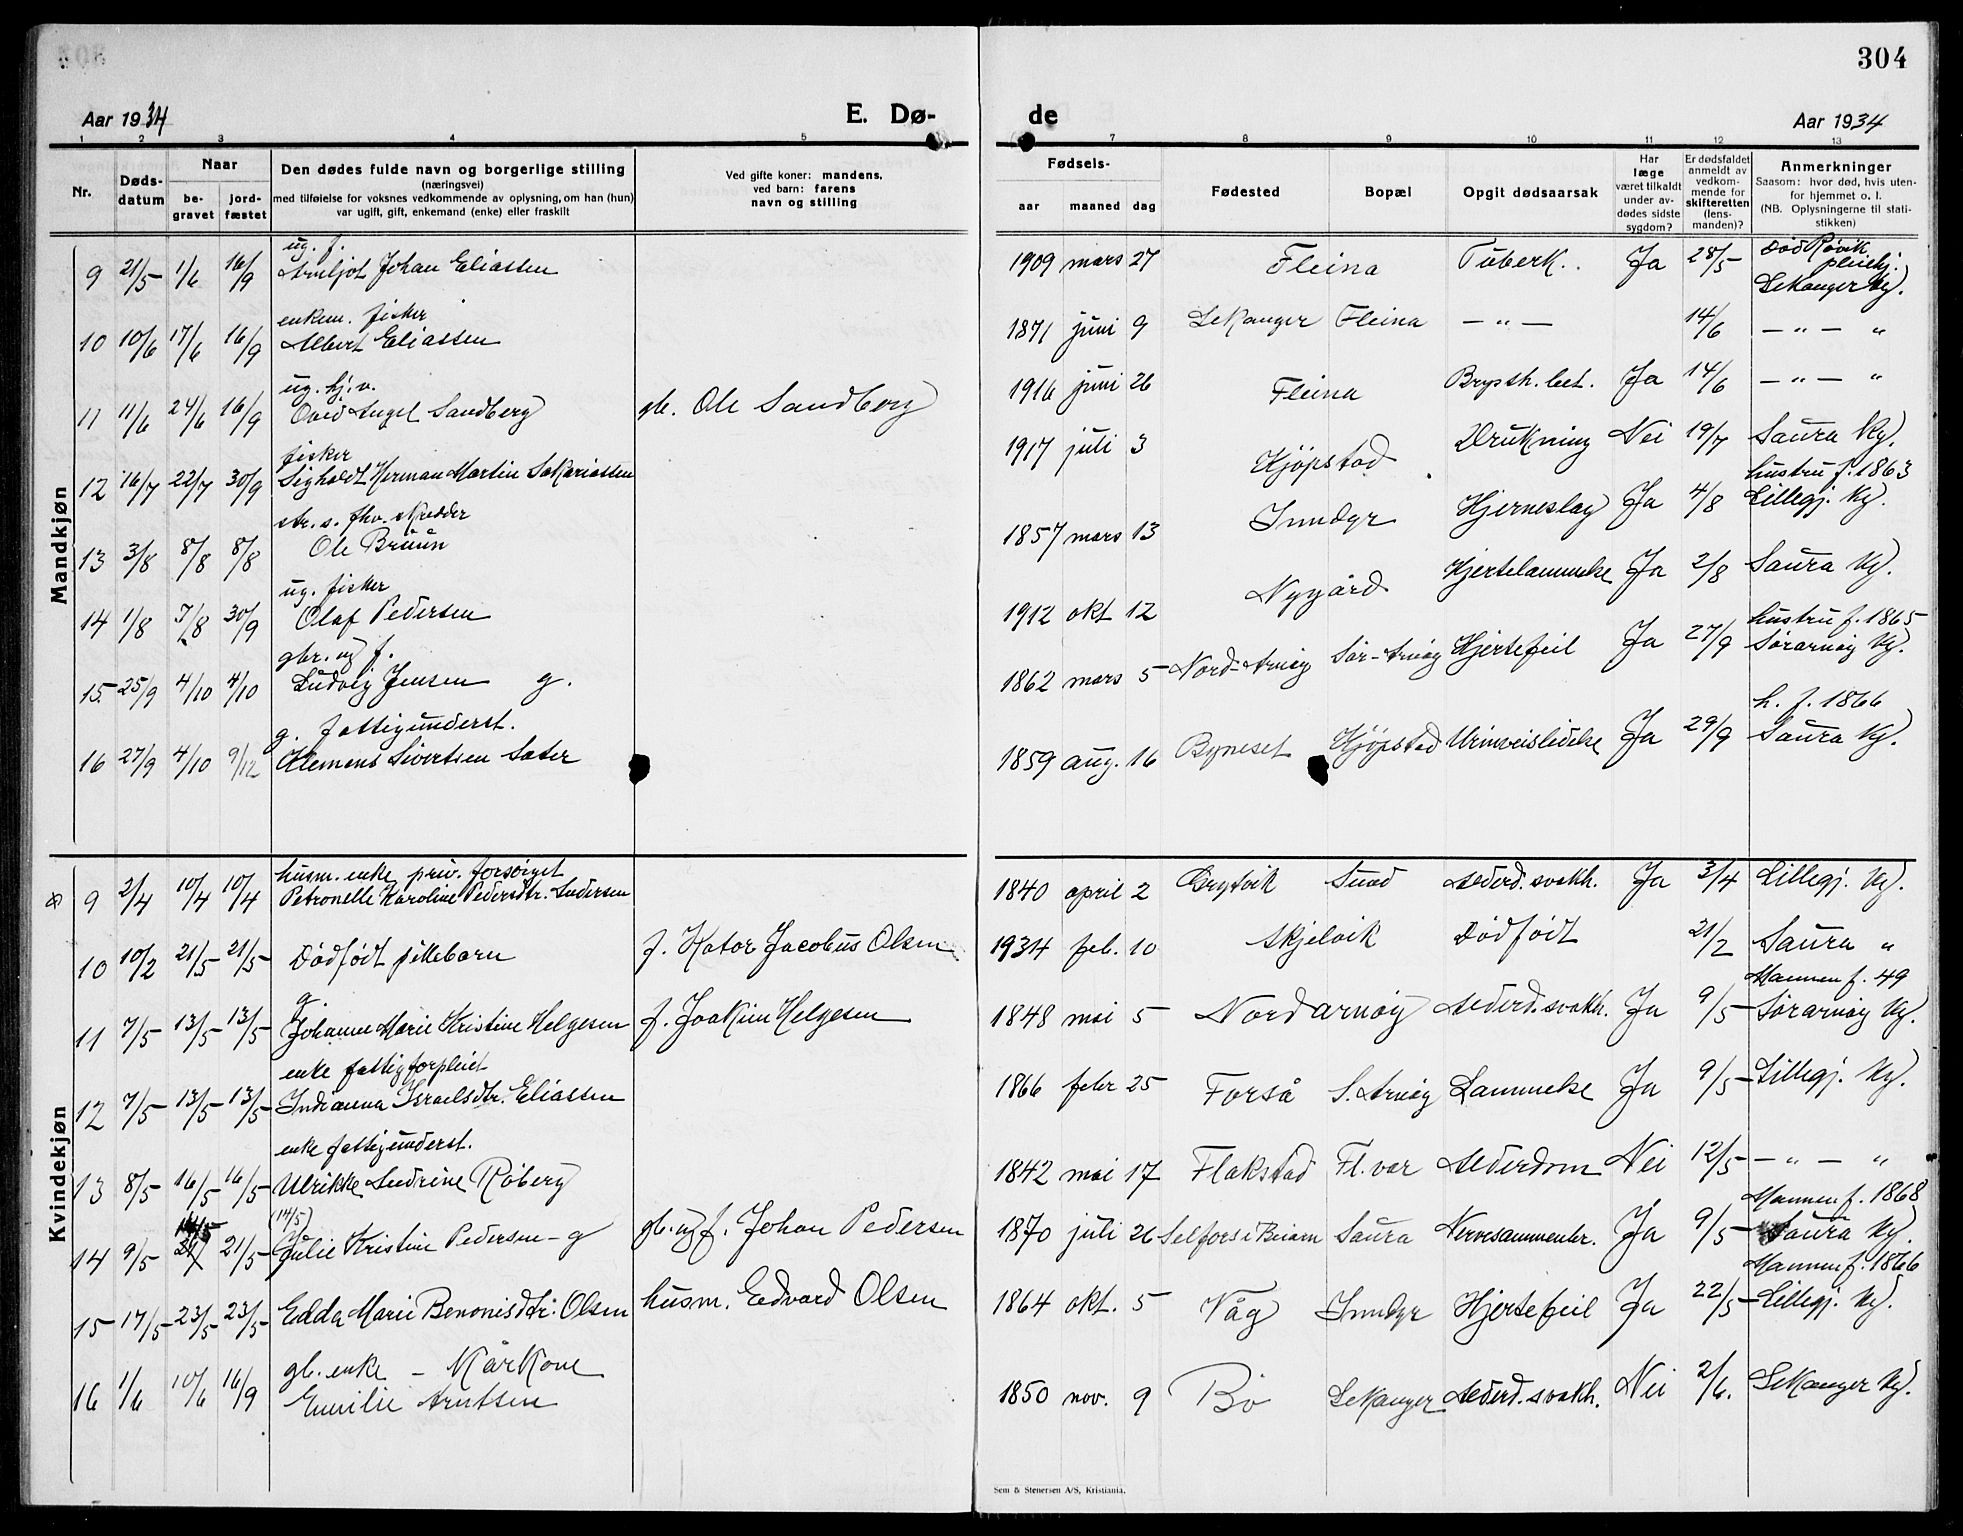 304
Aar 1934 E. Dø- de Aar 1934
1 2 3 4 5 7 8 9 10 11 12 13
Nr. Døds-datum Naar be-gravet jord-fæstet Den dødes fulde navn og borgerlige stilling (næringsvei) med tilføielse for voksnes vedkommende av oplysning, om han (hun) var ugift, gift, enkemand (enke) eller fraskilt Ved gifte koner: mandens, ved barn: farens navn og stilling Fødsels- aar maaned dag Fødested Bopæl Opgit dødsaarsak Har læge været tilkaldt under av-dødes sidste sygdom? Er dødsfaldet anmeldt av vedkom-mende for skifteretten (lens-manden)? Anmerkninger Saasom: hvor død, hvis uten-for hjemmet o. l. (NB. Oplysningerne til stati-stikken)
Mandkjøn
ug. f. Død Røvik pleiehj.
9 21/5 1/6 16/9 Arnljot Johan Eliassen 1909 mars 27 Fleina Tuberk. Ja 28/5 Lekanger kg.
enkem. fisker
10 10/6 17/6 16/9 Albert Eliassen 1871 juni 9 Lekanger Fleina — " — 14/6 — " — "
ug. hj. v.
11 11/6 24/6 16/9 Ovid Angel Sandberg gb. Ole Sandberg 1916 juni 26 Fleina Brysth. bet. Ja 14/6 — " — "
fisker
12 16/7 22/7 30/9 Sigholdt Herman Martin Sakariassen 1917 juli 3 Kjøpstad Drukning Nei 19/7 Saura kg.
str. s. fhv. skredder hustru f. 1863
13 3/8 8/8 8/8 Ole Bruun 1857 mars 13 Inndyr Hjerneslag Ja 4/8 Lillegj. kg.
ug. fisker
14 1/8 7/8 30/9 Olaf Pedersen 1912 okt 12 Nygård Hjertelammelse Ja 2/8 Saura kg.
gbr. og f. hustru f. 1865
15 25/9 4/10 4/10 Ludvig Jensen g. 1862 mars 5 Nord-Arnøy Sør-Arnøy Hjertefeil Ja 27/9 Sørarnøy kg.
g. fattigunderst. h. f. 1866
16 27/9 4/10 9/12 Klemens Sivertsen Sater 1859 aug. 16 Byneset Kjøpstad Urinveislidelse Ja 29/9 Saura kg.
Kvindekjøn
husm. enke priv. forsørget
9 2/4 10/4 10/4 Petronelle Karoline Pedersdtr. Andersen 1840 april 2 Sund Alderd. svakh. Ja 3/4 Lillegj. kg.
10 10/2 21/5 21/5 Dødfødt pikebarn f. Kator Jacobus Olsen 1934 feb. 10 Skjelvik Dødfødt 21/2 Saura "
g. Mannen f. 49
11 7/5 13/5 13/5 Johanne Marie Kristine Helgesen f. Joakim Helgesen 1848 mai 5 Nordarnøy Alderd. svakh. Ja 9/5 Sørarnøy kg.
enke fattigforpleiet
12 7/5 13/5 13/5 Indianna Israelsdtr. Eliassen 1866 febr 25 Forså S. Arnøy Lammelse Ja 9/5 Lillegj. kg.
enke fattigunderst.
13 8/5 16/5 16/5 Ulrikke Andrine Røberg 1842 mai 17 Flakstad Fl. vær Alderdom Nei 12/5 — " — "
(14/5) Mannen f. 1868
14 9/5 21/5 Julie Kristine Pedersen - g gb. og f. Johan Pedersen 1870 juli 26 Selfors i Beiarn Saura Nervesammenbr. Ja 9/5 Saura kg.
Mannen f. 1866
15 17/5 23/5 23/5 Edda Marie Benonisdtr. Olsen husm. Edvard Olsen 1864 okt. 5 Våg Inndyr Hjertefeil Ja 22/5 Lillegj. kg.
gb. enke - Kårkone
16 1/6 10/6 16/9 Emilie Arntsen 1850 nov. 9 Bø Lekanger Alderd. svakh. Nei 2/6. Lekanger kg.
Sem & Stenersen A/S, Kristiania.